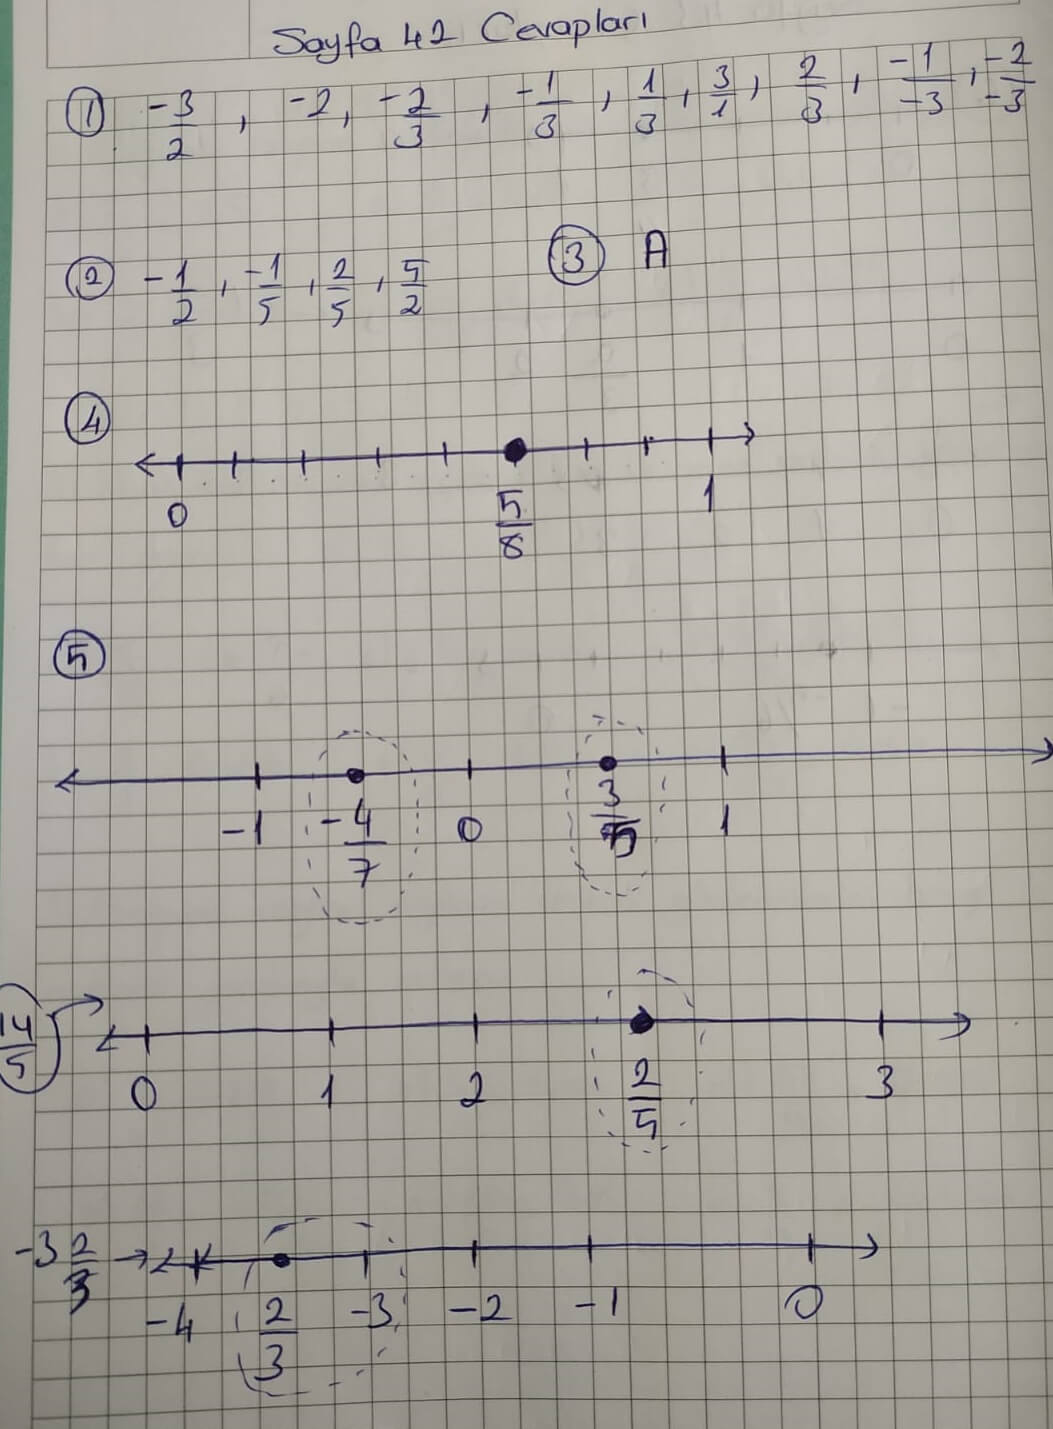 Sayfa 42 Cevapları
① -3/2, -2, -2/3, -1/3, 1/3, 3/1, 2/3, -1/-3, -2/-3
② -1/2, -1/5, 2/5, 5/2
③ A
④
0 5/8 1
⑤
-1 -4/7 0 3/5 1
14/5
0 1 2 2/5 3
-3 2/3
-4 2/3 -3 -2 -1 0